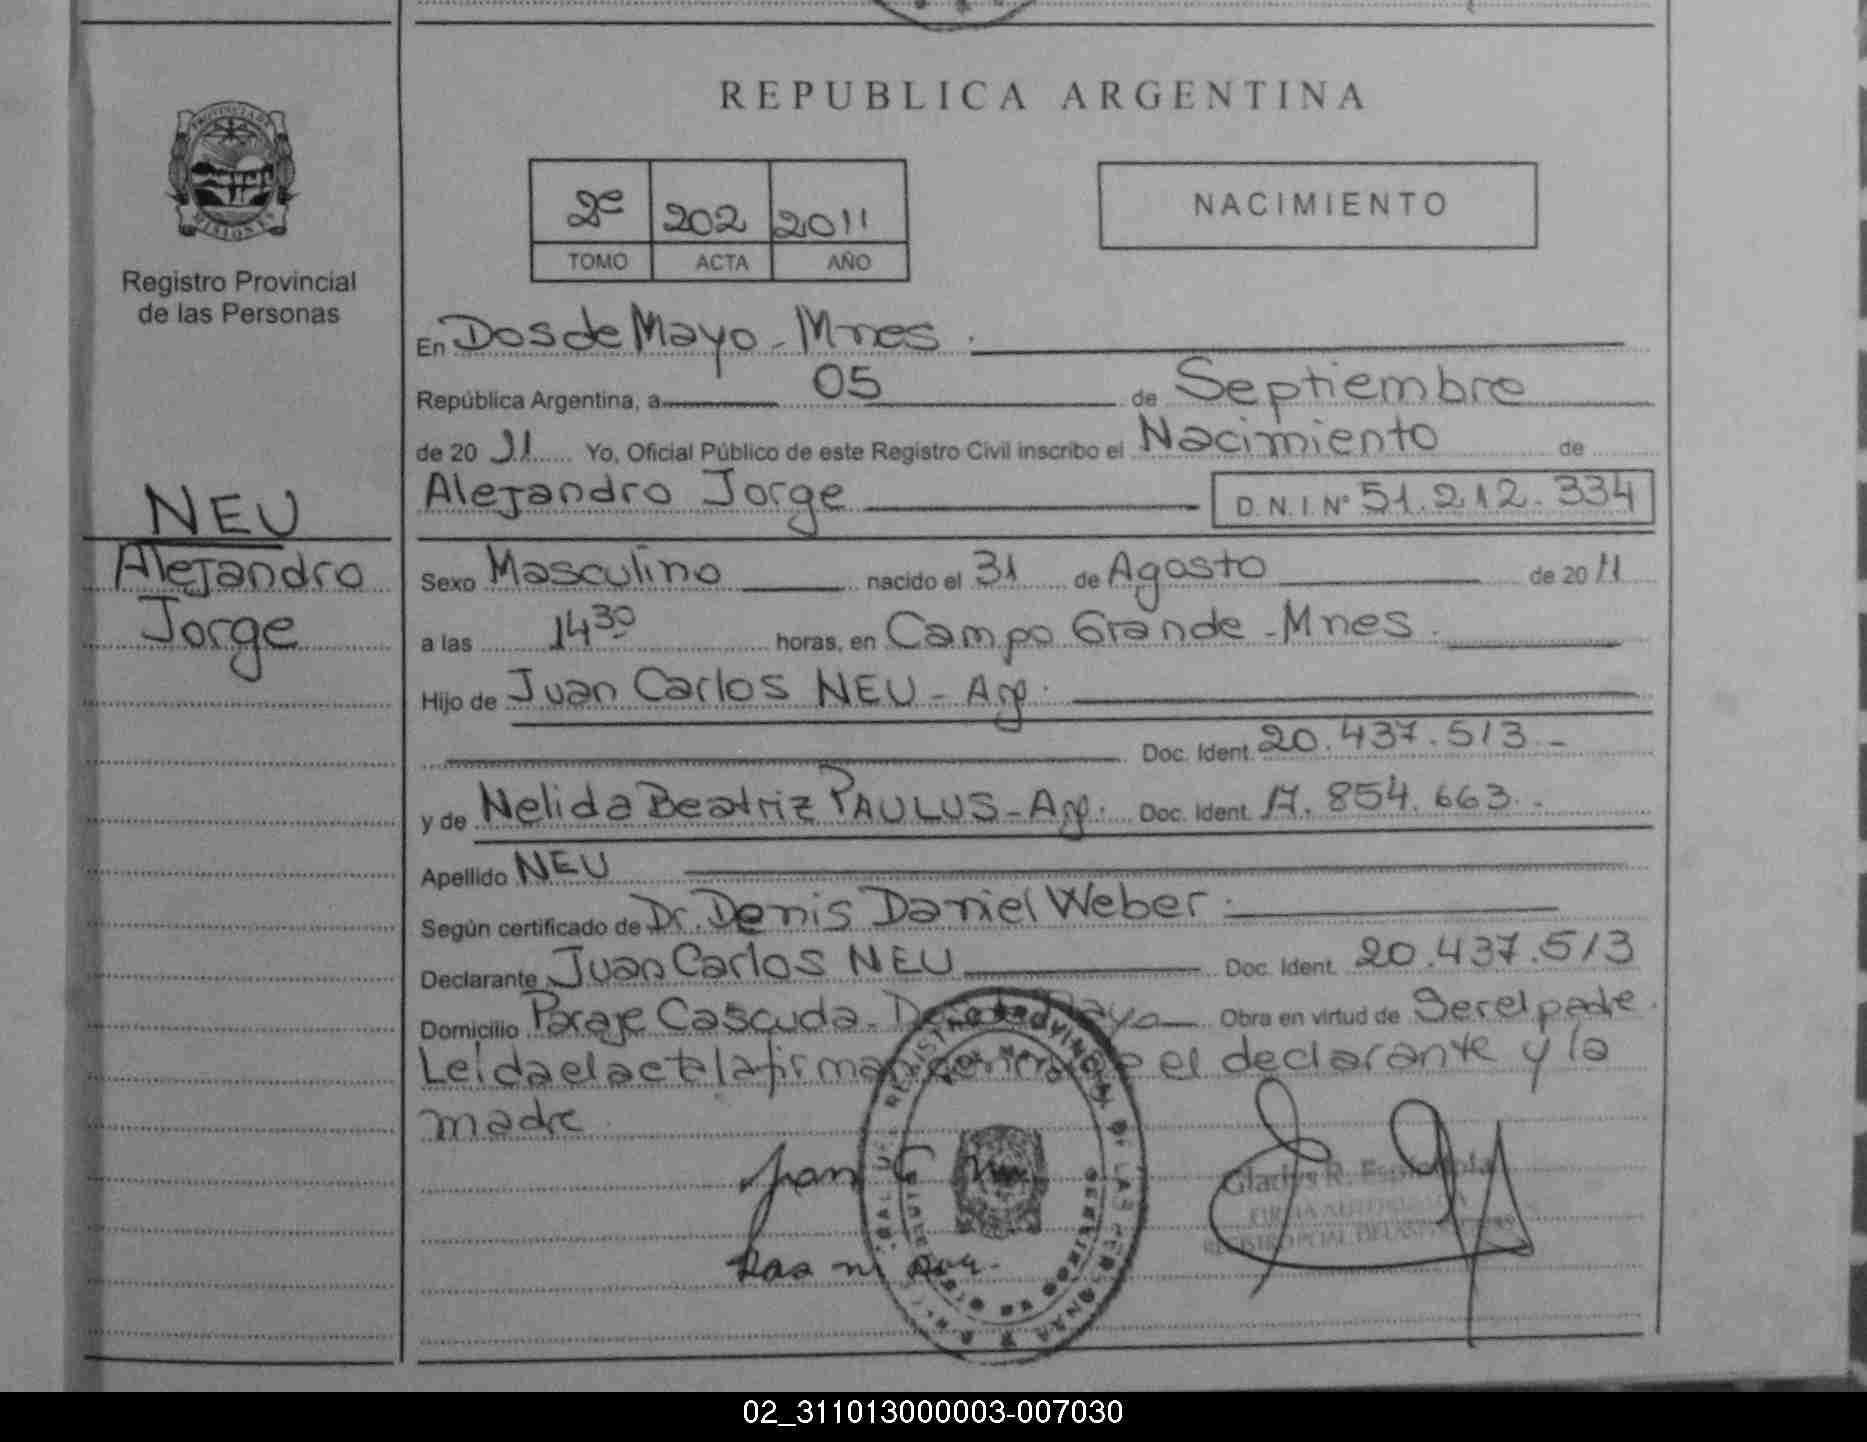 REPUBLICA ARGENTINA
PROVINCIA DE
MISIONES
Registro Provincial
de las Personas
2º 202 2011
TOMO ACTA AÑO
NACIMIENTO
En Dos de Mayo - Mnes.
República Argentina, a 05 de Septiembre
de 20 11 Yo, Oficial Público de este Registro Civil inscribo el Nacimiento de
Alejandro Jorge D.N.I. Nº 51.212.334
NEU
Alejandro
Jorge
Sexo Masculino nacido el 31 de Agosto de 20 11
a las 14 30 horas, en Campo Grande - Mnes.
Hijo de Juan Carlos NEU - Arg.
Doc. Ident. 20.437.513 -
y de Nelida Beatriz PAULUS - Arg. Doc. Ident. 17.854.663 -
Apellido NEU
Según certificado de Dr. Denis Daniel Weber.
Declarante Juan Carlos NEU Doc. Ident. 20.437.513
Domicilio Paraje Cascuda - Dos de Mayo Obra en virtud de Ser el padre.
Leida el acta la firman conmigo el declarante y la
madre.
Juan C
Gladys R.
FIRMA AUTORIZADA
02_311013000003-007030